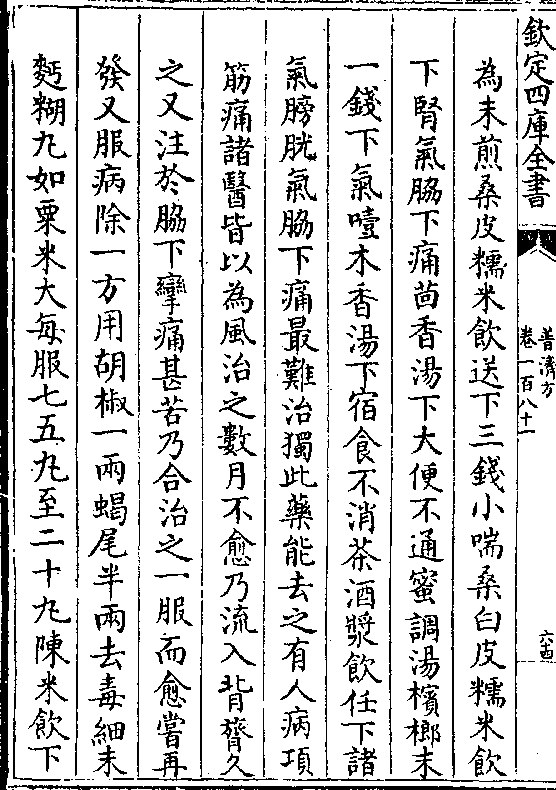 欽定四庫全書
普濟方
卷一百八十一
六十四
為末煎桑皮糯米飲送下三錢小喘桑白皮糯米飲
下腎氣脇下痛茴香湯下大便不通蜜調湯檳榔末
一錢下氣噎木香湯下宿食不消茶酒漿飲任下諸
氣膀胱氣脇下痛最難治獨此藥能去之有人病項
筋痛諸醫皆以為風治之數月不愈乃流入背膂久
之又注於脇下攣痛甚苦乃合治之一服而愈嘗再
發又服病除一方用胡椒一兩蝎尾半兩去毒細末
麪糊丸如粟米大每服七五丸至二十丸陳米飲下